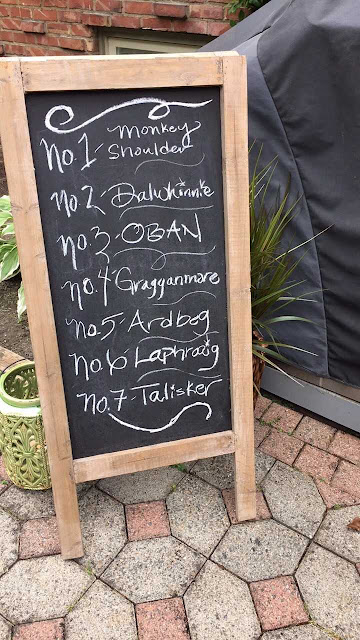 No. 1 - Monkey
Shoulder
No. 2 - Dalwhinnie
No. 3 - OBAN
No. 4 - Cragganmore
No. 5 - Ardbeg
No. 6 - Laphroaig
No. 7 - Talisker